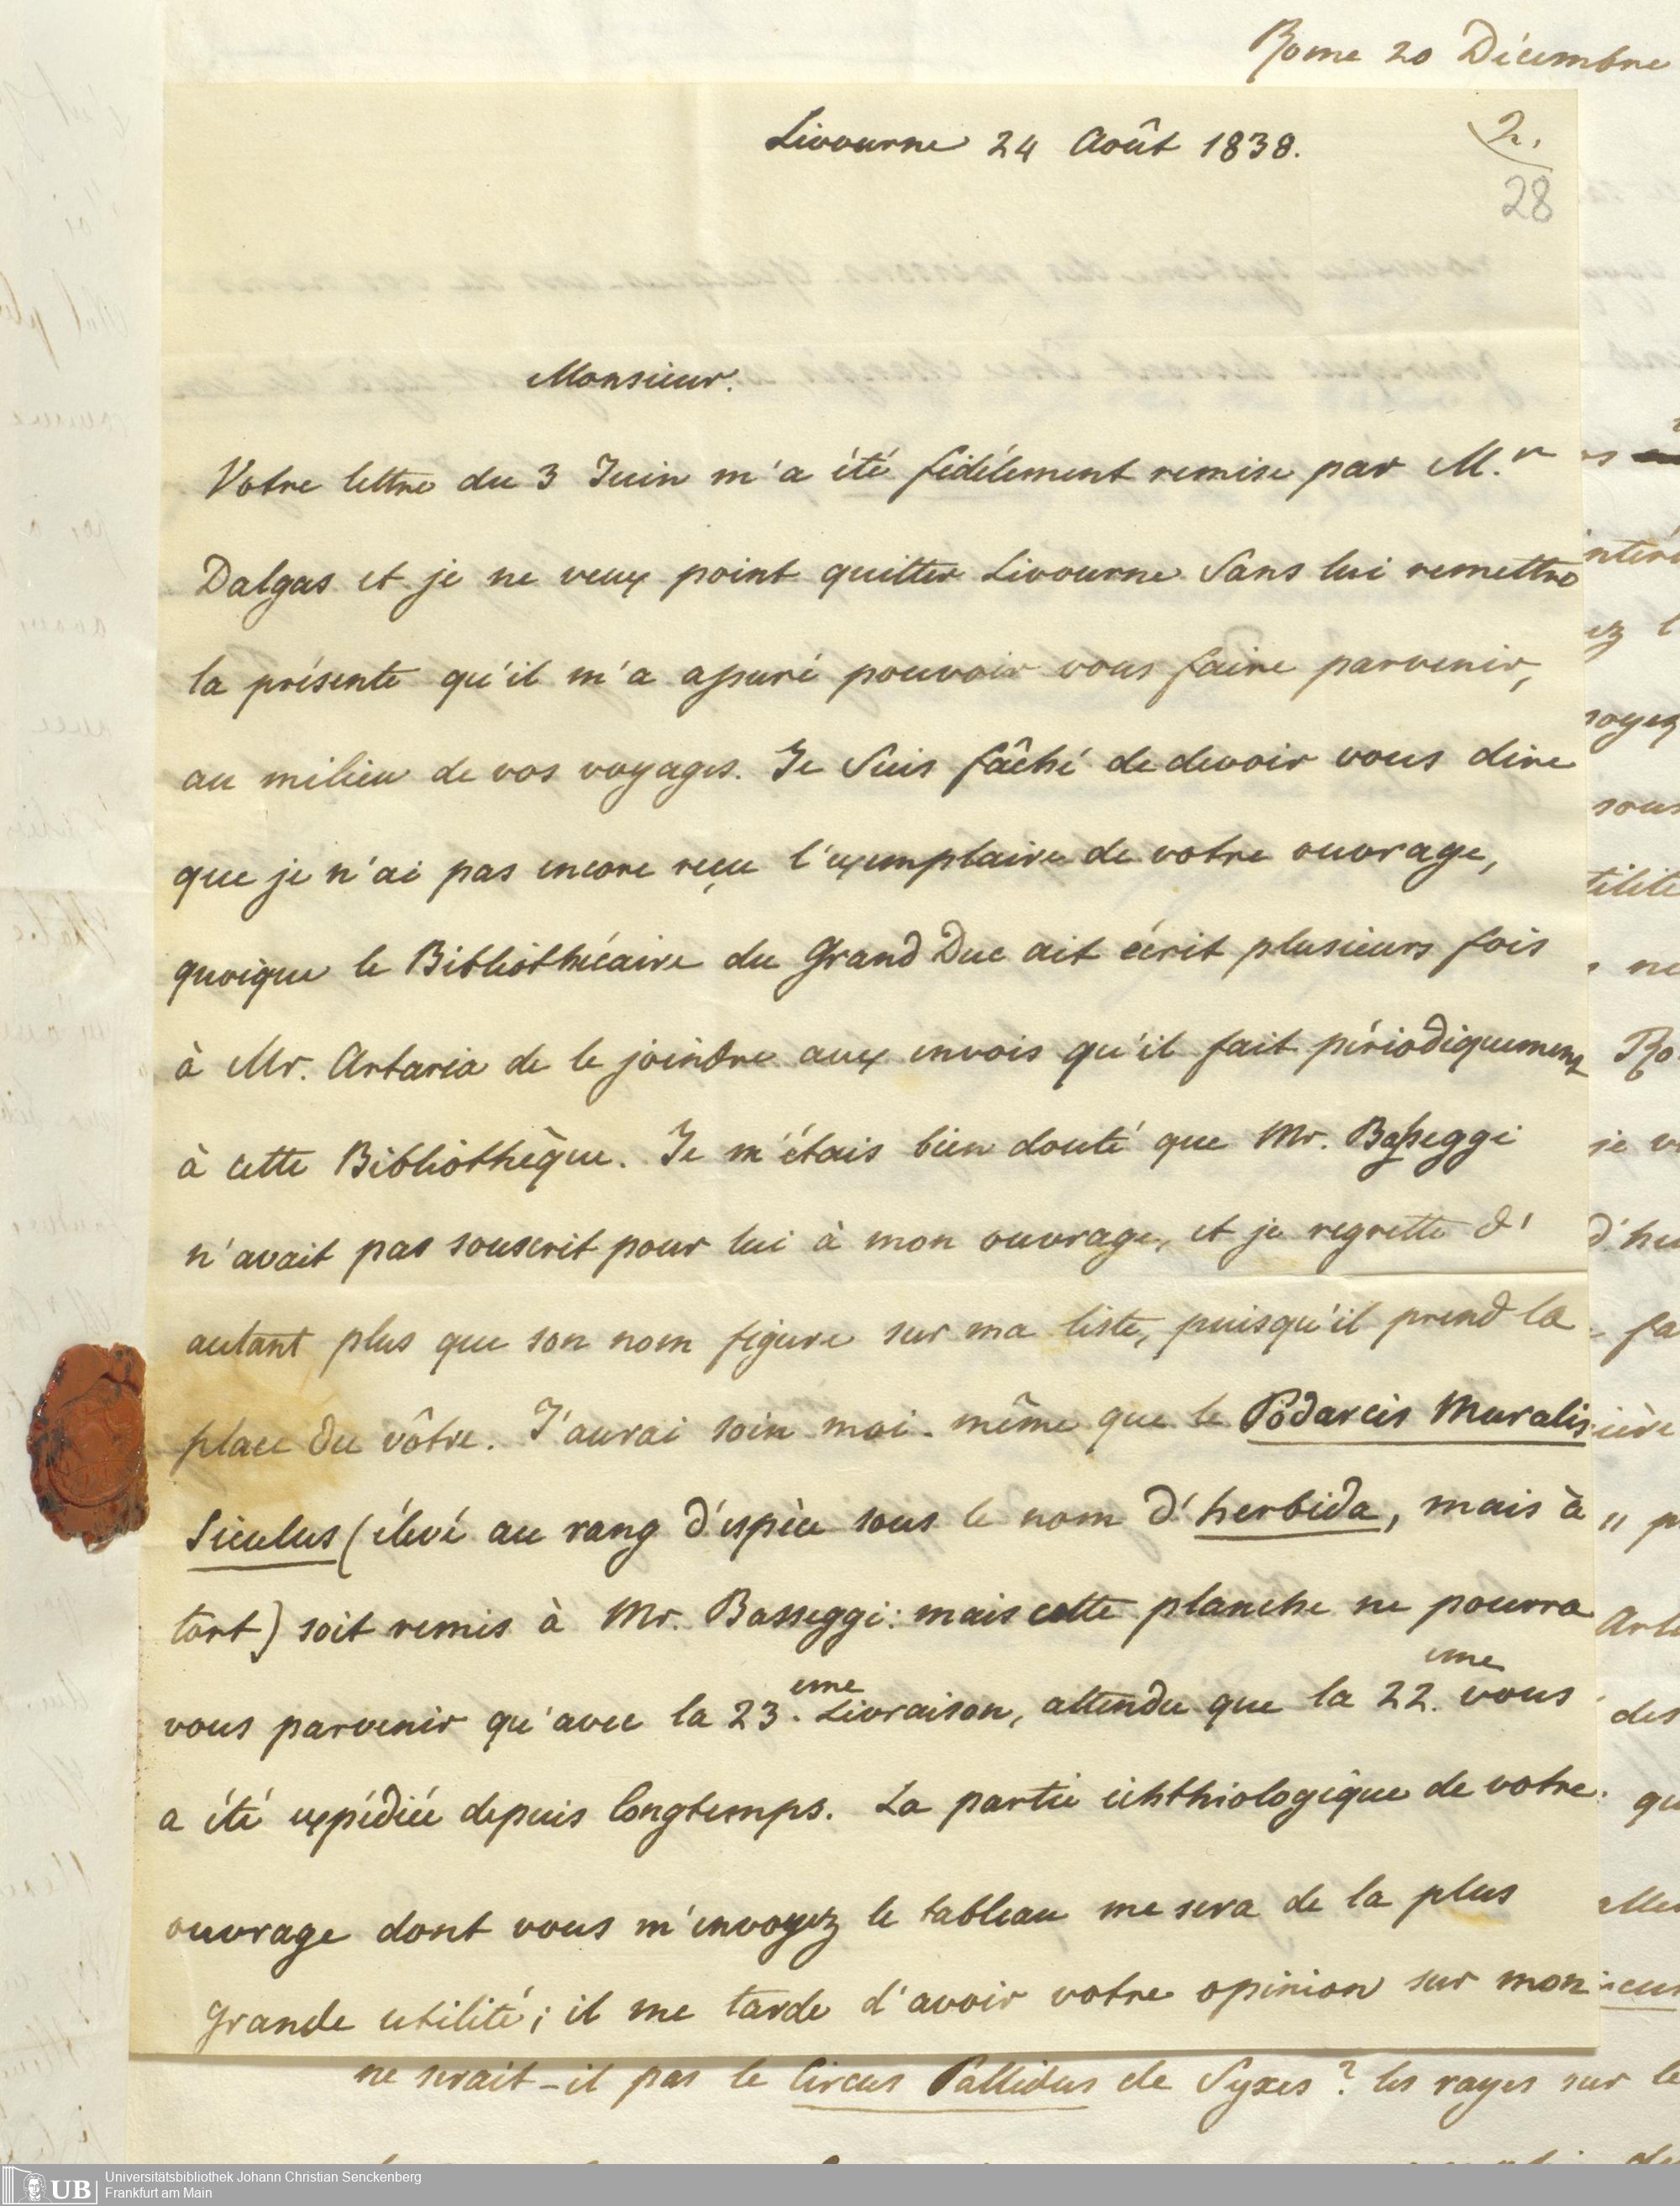 Rome 20 Décembre
Livourne 24 Août 1838.
2.
28
Monsieur.
Votre lettre du 3 Juin m'a été fidélement remise par M.r
Dalgas et je ne veux point quitter Livourne sans lui remettre
la présente qu'il m'a assuré pouvoir vous faire parvenir,
au milieu de vos voyages. Je suis fâché de devoir vous dire
que je n'ai pas encore reçu l'exemplaire de votre ouvrage,
quoique le Bibliothécaire du Grand Duc ait écrit plusieurs fois
à Mr. Artaria de le joindre aux envois qu'il fait périodiquement
à cette Bibliothèque. Je m'étais bien douté que Mr. Basseggi
n'avait pas souscrit pour lui à mon ouvrage, et je regrette d'
autant plus que son nom figure sur ma liste, puisqu'il prend la
place du vôtre. J'aurai soin moi-même que le Podarcis Muralis
Siculus (élevé au rang d'espèce sous le nom d'herbida, mais à
tort) soit remis à Mr. Basseggi: mais cette planche ne pourra
vous parvenir qu'avec la 23.eme Livraison, attendu que la 22.eme vous
a été expédiée depuis longtemps. La partie ichthiologique de votre
ouvrage dont vous m'envoyez le tableau me sera de la plus
grande utilité; il me tarde d'avoir votre opinion sur mon
ne serait-il pas le Circus Pallidus de Syxes? les rayes sur le
UB
Universitätsbibliothek Johann Christian Senckenberg
Frankfurt am Main